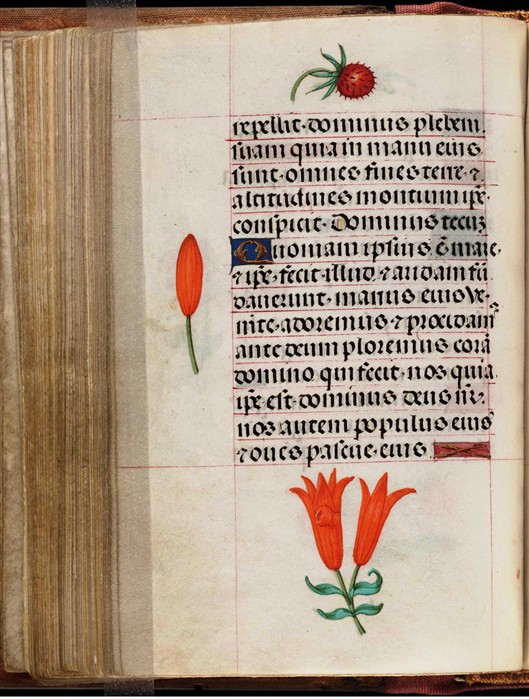 repellit· dominus plebem
suam quia in manu eius
sunt· omnes fines terre· ⁊
altitudines montium ipse
conspicit· Dominus tecuʒ
Quoniam ipsius ē mare·
⁊ ip̄e· fecit· illud· ⁊ aridam fū
dauerunt· manus eius Ve-
nite· adoremus ⁊ procidamꝰ
ante deum ploremus corā
domino qui fecit· nos quia
ip̄e est· dominus deus nr̄·
nos autem populus eiusꝰ
⁊ oues pascue· eius